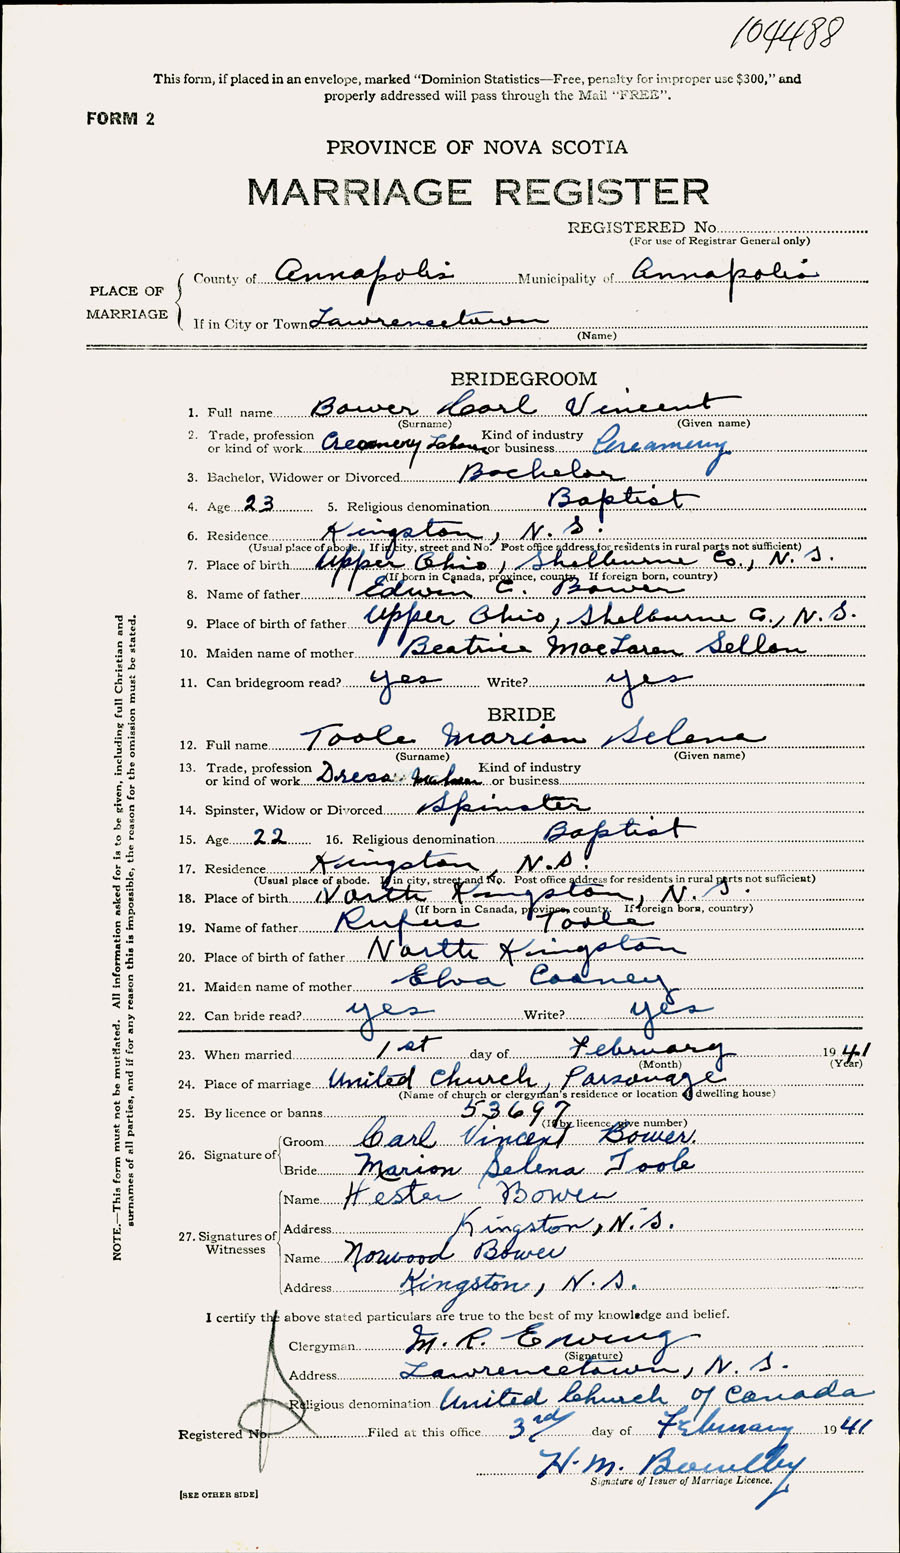 104488
This form, if placed in an envelope, marked "Dominion Statistics—Free, penalty for improper use $300," and
properly addressed will pass through the Mail "FREE".
FORM 2
PROVINCE OF NOVA SCOTIA
MARRIAGE REGISTER
REGISTERED No.
(For use of Registrar General only)
PLACE OF MARRIAGE
County of Annapolis Municipality of Annapolis
If in City or Town Lawrencetown
(Name)
BRIDEGROOM
1. Full name Bower Carl Vincent
(Surname) (Given name)
2. Trade, profession or kind of work Creamery Kind of industry or business Creamery
3. Bachelor, Widower or Divorced Bachelor
4. Age 23 5. Religious denomination Baptist
6. Residence Kingston, N. S.
(Usual place of abode. If in city, street and No. Post office address for residents in rural parts not sufficient)
7. Place of birth Upper Ohio, Shelburne Co., N. S.
(If born in Canada, province, county. If foreign born, country)
8. Name of father Edwin C. Bower
9. Place of birth of father Upper Ohio, Shelburne Co., N. S.
10. Maiden name of mother Beatrice MacLaren Sellon
11. Can bridegroom read? yes Write? yes
BRIDE
12. Full name Toole Marion Selena
(Surname) (Given name)
13. Trade, profession or kind of work Dress Maker Kind of industry or business
14. Spinster, Widow or Divorced Spinster
15. Age 22 16. Religious denomination Baptist
17. Residence Kingston, N.S.
(Usual place of abode. If in city, street and No. Post office address for residents in rural parts not sufficient)
18. Place of birth North Kingston, N. S.
(If born in Canada, province, county. If foreign born, country)
19. Name of father Rufus Toole
20. Place of birth of father North Kingston
21. Maiden name of mother Elva Cooney
22. Can bride read? yes Write? yes
23. When married 1st day of February 1941
(Month) (Year)
24. Place of marriage United Church, Parsonage
(Name of church or clergyman's residence or location of dwelling house)
25. By licence or banns 53697
(If by licence, give number)
26. Signature of
Groom Carl Vincent Bower.
Bride Marion Selena Toole
27. Signatures of Witnesses
Name Hester Bower
Address Kingston, N.S.
Name Norwood Bower
Address Kingston, N. S.
I certify the above stated particulars are true to the best of my knowledge and belief.
Clergyman M. R. Ewing
(Signature)
Address Lawrencetown, N. S.
Religious denomination United Church of Canada
Registered No. Filed at this office 3rd day of February 1941
H. M.
Signature of Issuer of Marriage Licence.
[SEE OTHER SIDE]
NOTE.—This form must not be mutilated. All information asked for is to be given, including full Christian and
surnames of all parties, and if for any reason this is impossible, the reason for the omission must be stated.